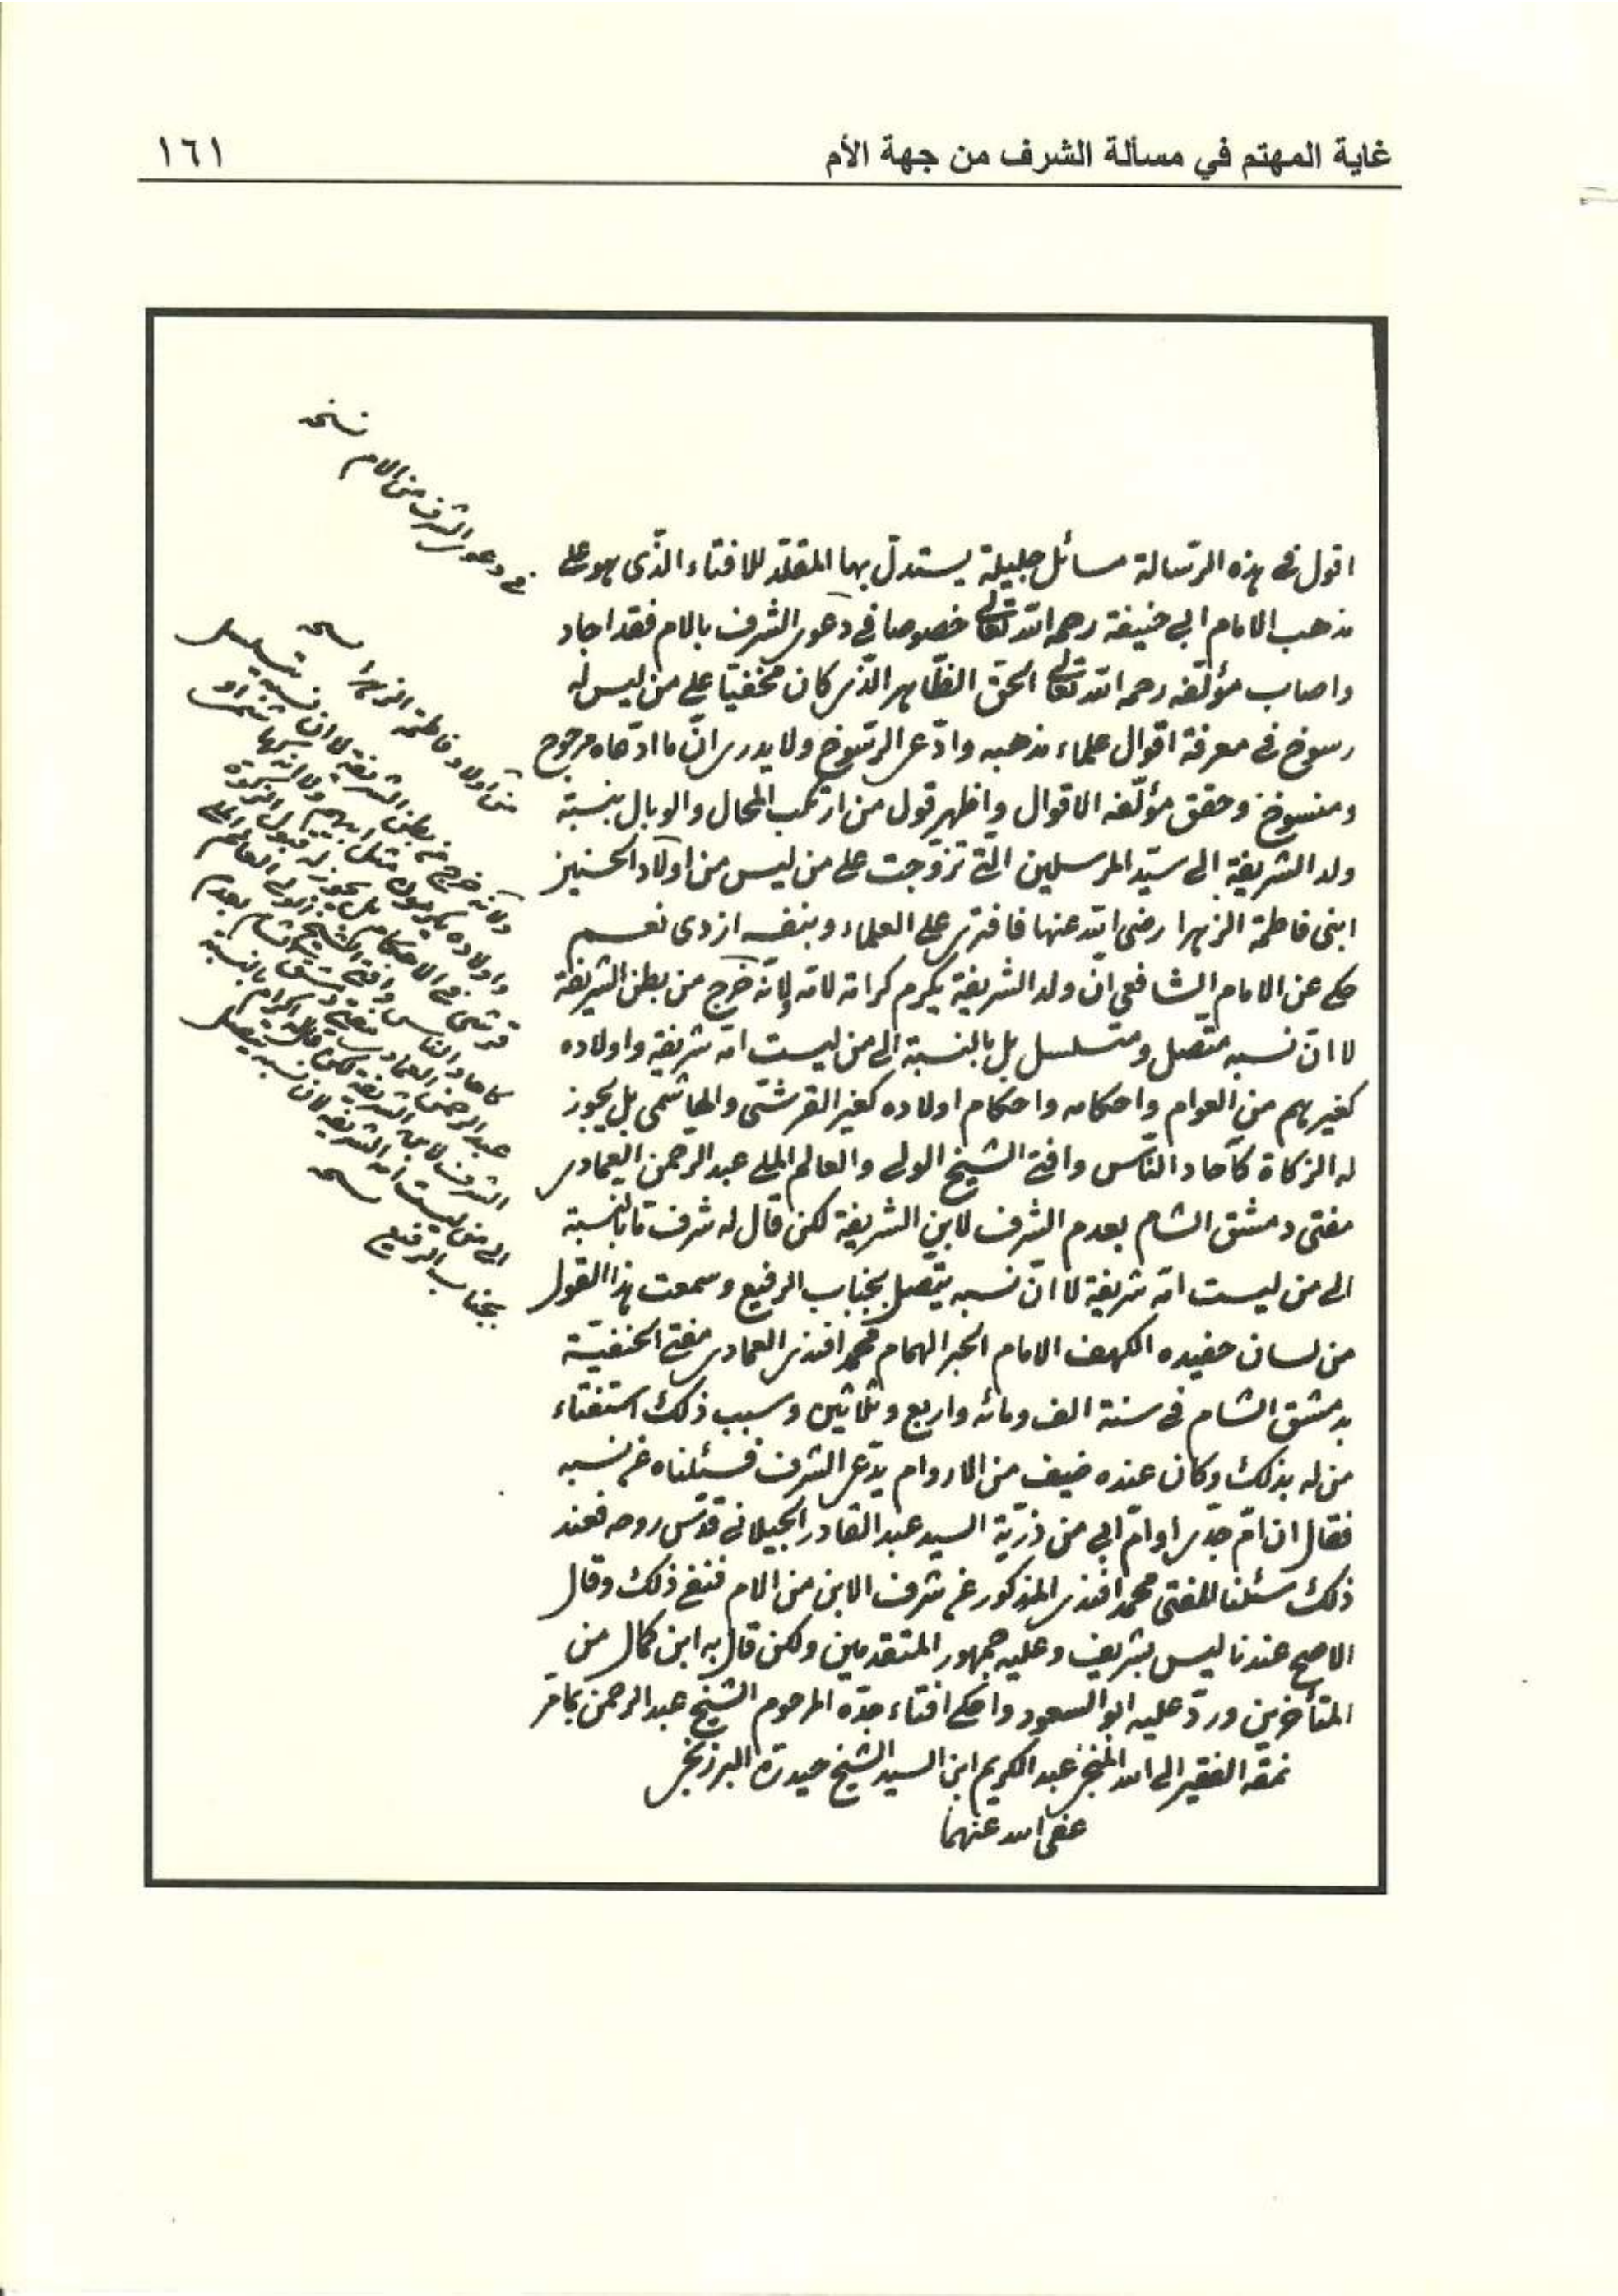 غاية المهتم في مسألة الشرف من جهة الأم
١٦١
اقول فى هذه الرّسالة مسائل جليلة يستدلّ بها المقلّد للافتاء الذّى هو على
مذهب الامام ابي حنيفة رحمه الله تعالى خصوصا في دعوى الشرف بالام فقد اجاد
واصاب مؤلّفه رحمه الله تعالى الحق الظّاهر الذّى كان مخفيّا على من ليس له
رسوخ فى معرفة اقوال علماء مذهبه وادّعى الرّسوخ ولا يدرى انّ ما ادّعاه مرجوح
ومنسوخ وحقق مؤلّفه الاقوال واظهر قول من ارتكب المحال والوبال بنسبة
ولد الشريفة الى سيّد المرسلين الّتى تزوّجت على من ليس من اولاد الحسنين
ابنى فاطمة الزهرا رضى الله عنها فافترى على العلماء وبنفسه ازدى نعم
حكى عن الامام الشافعي انّ ولد الشريفة يكرم كرامة لامّه لانّه خرج من بطن الشريفة
لا انّ نسبه متّصل ومتسلسل بل بالنسبة الى من ليست امّه شريفة واولاده
كغيرهم من العوام واحكامه واحكام اولاده كغير القرشىّ والهاشمى بل يجوز
له الزكاة كآحاد النّاس وافتى الشيخ الولى والعالم الملى عبد الرّحمن العمادى
مفتى دمشق الشام بعدم الشرف لابن الشريفة لكن قال له شرف مّا بالنسبة
الى من ليست امّه شريفة لا انّ نسبه يتّصل بجناب الرفيع وسمعت هذا القول
من لسان حفيده الكهف الامام الحبر الهمام محمد افندى العمادى مفتى الحنفيّة
بدمشق الشام فى سنة الف ومائه واربع وثلاثين وسبب ذلك استفتاء
من له بذلك وكان عنده ضيف من الاروام يدّعى الشرف فسئلناه عن نسبه
فقال ان امّ جدّى او امّ ابي من ذرّية السيد عبد القادر الجيلانى قدّس روحه فعند
ذلك سئلنا المفتى محمد افندى المذكور عن شرف الابن من الام فنفى ذلك وقال
الاصح عندنا ليس بشريف وعليه جمهور المتقدمين ولكن قال به ابن كمال من
المتأخرين وردّ عليه ابو السعود واحكى افتاء جدّه المرحوم الشيخ عبد الرحمن كما مرّ
نمقه الفقير الى الله المنجى عبد الكريم ابن السيد الشيخ حيدر البرزنجى
عفى الله عنهما
فى دعوى الشرف من الام نسخه
من اولاد فاطمة الزهرا نسخه
لانّه خرج من بطن الشريفة لا ان نسبه متسلسل
عبد الرحمن العمادى مفتى دمشق الشام بعدم
الى من ليست امه الشريفه لا ان نسبه يتصل
بجناب الرفيع نسخه